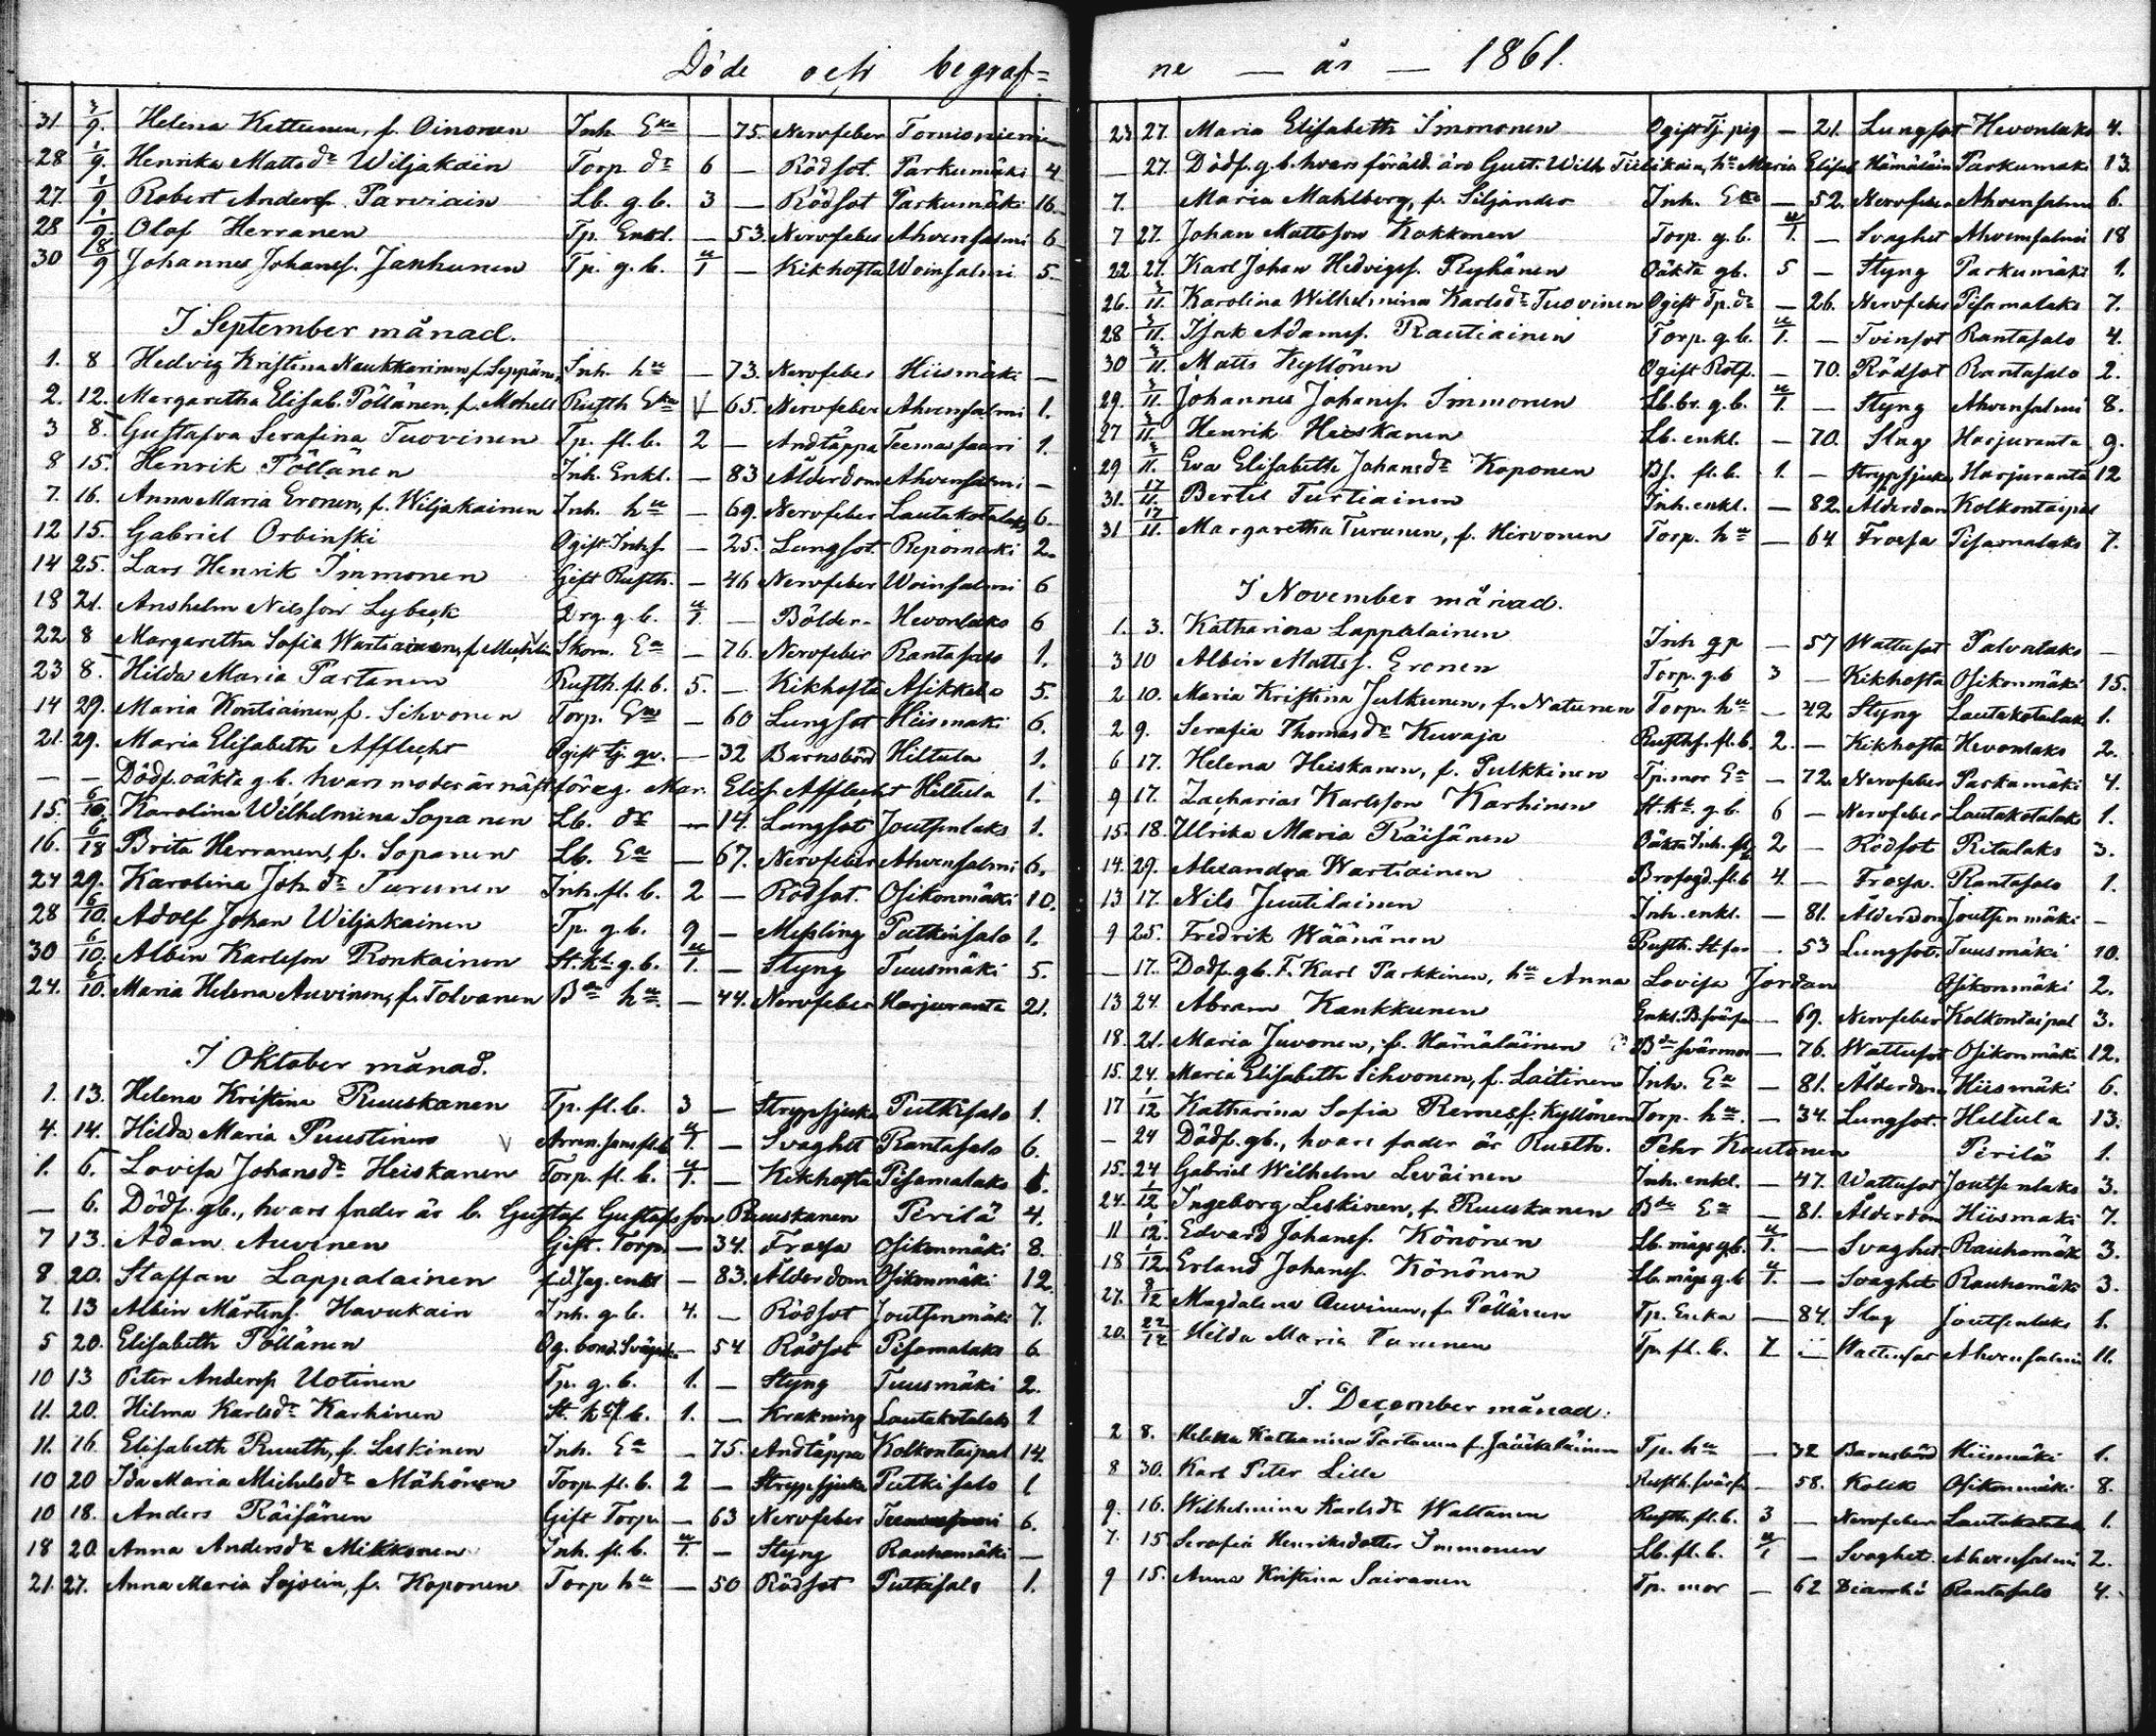 Döde och begraf=
31 3/9. Helena Kettunen, f. Oinonen Inh. Eka — 75. Nervfeber Tornioniemi —
28 1/9. Henrika Mattsdr Wiljakain Torp. dr 6 — Rödsot. Parkumäki 4
27. 1/9 Robert Andersf. Parviain Lb. g.b. 3 — Rödsot Parkumäki 16.
28 1/9. Olof Herranen Tp. Enkl. — 53. Nervfeber Ahvensalmi 6
30 18/9 Johannes Johansf. Janhunen Tp. g.b. u/1 — Kikhosta Woinsalmi 5.
I September månad.
1. 8 Hedvig Kristina Naukkarinen, f. Seppän. Inh. hu — 73. Nervfeber Hiismäki —
2. 12. Margaretha Elisab. Pöllänen, f. Mohell Rusth Eka V 65. Nervfeber Ahvensalmi 1.
3 8. Gustafva Serafina Tuovinen Tp. fl.b. 2 — Andtäppa Teemassaari 1.
8 15. Henrik Pöllänen Inh. Enkl. — 83 Ålderdom Ahvensalmi —
7. 16. Anna Maria Eronen, f. Wiljakainen Inh. hu — 69. Nervfeber Lautakotalaks 6.
12 15. Gabriel Orbinski Ogift Inhs — 25. Lungsot. Repomäki 2.
14 25. Lars Henrik Immonen Gift Rusth. — 46 Nervfeber Woinsalmi 6
18 21. Anshelm Nilsson Lybeck Drg. g.b. u/1. — Bölder Hevonlaks 6
22 8 Margaretha Sofia Wartiainen, f. Skom. Ea — 76. Nervfeber Rantasalo 1.
23 8. Hilda Maria Partanen Rusth. fl.b. 5. — Kikhosta Asikkala 5.
14 29. Maria Kontiainen, f. Sihvonen Torp. Ea — 60 Lungsot Hiismäki 6.
21. 29. Maria Elisabeth Afflecht Ogift tj. qv. — 32 Barnsbörd Hiltula 1.
— — Dödf. oäkta g.b., hvars moder är näst föreg. Mar. Elis. Afflecht Hiltula 1.
15. 6/10. Karolina Wilhelmina Sopanen Lb. dr — 14. Lungsot Joutsenlaks 1.
16. 6/18 Brita Herranen, f. Sopanen Lb. Ea — 67. Nervfeber Ahvensalmi 6.
24 29. Karolina Joh.dr Turunen Inh. fl.b. 2 — Rödsot. Osikonmäki 10.
28 6/10. Adolf Johan Wiljakainen Tp. g.b. 9 — Mesling Putkisalo 1.
30 6/10. Albin Karlsson Ronkainen St.kd. g.b. u/1. — Styng Tuusmäki 5.
24. 6/10. Maria Helena Auvinen, f. Tolvanen Bde hu. — 44. Nervfeber Harjuranta 21.
I Oktober månad.
1. 13. Helena Kristina Ruuskanen Tp. fl.b. 3 — Strypsjuka Putkisalo 1.
4. 14. Hilda Maria Puustinen V u/1. — Svaghet Rantasalo 6.
1. 6. Lovisa Johansdr Heiskanen Torp. fl.b. u/1. — Kikhosta Pisamalaks 1.
— 6. Dödf. gb., hvars fader är b. Gustaf Gustafsson Ruuskanen Pirilä 4.
7 13. Adam Auvinen Gift. Torp. — 34. Frossa Osikonmäki 8.
8 20. Staffan Lappalainen f.d. Jag. enkl — 83. Ålderdom Osikonmäki 12.
7. 13 Albin Mårtensf. Havukain Inh. g.b. 4. — Rödsot Joutsenmäki 7.
5 20. Elisabeth Pöllänen Og. bond. — 54 Rödsot Pisamalaks 6.
10 13 Peter Andersf. Uotinen Tp. g.b. 1. — Styng Tuusmäki 2.
11. 20. Hilma Karlsdr Karhinen St. kd. fl.b. 1. — Krakning Lautakotalaks 1
11. 16. Elisabeth Ruuth, f. Leskinen Inh. Ea — 75. Andtäppa Kolkontaipal 14.
10 20 Ida Maria Michelsdr Mähönen Torp. fl.b. 2 — Strypsjuka Putkisalo 1
10 18. Anders Räisänen Gift Torp. — 63 Nervfeber 6.
18 20. Anna Andersdr Mikkonen Inh. fl.b. u/1. — Styng Rauhamäki —
21. 27. Anna Maria Sojolin, f. Koponen Torp hu — 50 Rödsot Putkisalo 1.
ne — år — 1861.
23 27. Maria Elisabeth Immonen Ogift Tj. pig — 21. Lungsot Hevonlaks 4.
— 27. Dödf. g.b. hvars föräld. äro Gust. Wilh. Tiilikain, hu Maria Elisab Hämäläin Parkumäki 13.
7. Maria Mahlberg, f. Siljander Inh. Eka — 52. Nervfeber Ahvensalmi 6.
7 27. Johan Mattsson Kokkonen Torp. g.b. u/1. — Svaghet Ahvensalmi 18
22 27. Karl Johan Hedvigsf. Ryhänen Oäkta gb. 5 — Styng Parkumäki 1.
26. 3/11. Karolina Wilhelmina Karlsdr Tuovinen Ogift Tp.dr — 26. Nervfeber Pisamalaks 7.
28 3/11. Isak Adamsf. Rautiainen Torp. g.b. u/1. — Tvinsot Rantasalo 4.
30 3/11. Matts Kyllönen Ogift Rotf. — 70. Rödsot Rantasalo 2.
29. 3/11. Johannes Johansf. Immonen Lb.br. g.b. u/1. — Styng Ahvensalmi 8.
27 3/11. Henrik Heiskanen Lb. enkl. — 70. Slag Harjuranta 9.
29 3/11. Eva Elisabeth Johansdr Koponen Bs. fl.b. 1. — Strypsjuka Harjuranta 12
31. 17/11. Bertel Turtiainen Inh. enkl. — 82. Ålderdom Kolkontaipal
31 17/11. Margaretha Turunen, f. Hirvonen Torp. hu — 64 Frossa Pisamalaks 7.
I November månad.
1. 3. Katharina Lappalainen Inh gp — 57 Wattusot Palvalaks —
3 10 Albin Mattsf. Eronen Torp. g.b 3 — Kikhosta Osikonmäki 15.
2 10. Maria Kristina Julkunen, f. Naturen Torp. hu — 42 Styng Lautakotalaks 1.
2 9. Serafia Thomasdr Kuvaja Rusths. fl.b. 2. — Kikhosta Hevonlaks 2.
6 17. Helena Heiskanen, f. Pulkkinen Tp. mor Ea — 72. Nervfeber Parkumäki 4.
9 17. Zacharias Karlsson Karhinen St.kd. g.b. 6 — Nervfeber Lautakotalaks 1.
15. 18. Ulrika Maria Räisänen Oäkta Inh. fl. 2 — Rödsot Ritalaks 3.
14. 29. Alexandra Wartiainen Brofogd. fl.b 4. — Frossa. Rantasalo 1.
13 17. Nils Juutilainen Inh. enkl. — 81. Ålderdom Joutsenmäki —
9 25. Fredrik Wäänänen Rusth. St.far . 53 Lungsot. Tuusmäki 10.
— 17. Dödf. gb. F. Karl Parkkinen, hu Anna Lovisa Jordan Osikonmäki 2.
13 24. Abram Kankkunen Enkl. B. svärfar — 69. Nervfeber Kolkontaipal 3.
18. 21. Maria Juvonen, f. Hämäläinen Bde svärmor — 76. Wattusot Osikonmäki 12.
15. 24. Maria Elisabeth Sihvonen, f. Laitinen Inh. Ea — 81. Ålderdom Hiismäki 6.
17 1/12 Katharina Sofia Remes, f. Kyllönen Torp. hu. — 34. Lungsot. Hiltula 13.
— 24 Dödf. gb., hvars fader är Rusth. Pehr Kautonen Pirilä 1.
15. 24 Gabriel Wilhelm Leväinen Inh. enkl. — 47. Wattusot Joutsenlaks 3.
24. 1/12 Ingeborg Leskinen, f. Ruuskanen Bde Ea — 81. Ålderdom Hiismäki 7.
11 1/12. Edvard Johansf. Könönen Lb. mågs gb. u/1. — Svaghet Rauhamäki 3.
18 1/12. Erland Johansf. Könönen Lb. mågs g.b u/1. — Svaghet Rauhamäki 3.
27. 8/12 Magdalena Auvinen, f. Pöllänen Tp. Enka — 84. Slag Joutsenlaks 1.
20. 22/12 Hilda Maria Turunen Tp. fl.b. 7 — Wattusot Ahvensalmi 11.
I December månad.
2 8. Helena Katharina Partanen f. Jääskeläinen Tp. hu — 32 Barnsbörd Hiismäki 1.
8 30. Karl Peter Lille Rusth. svärf. — 58. Kolik Osikonmäki 8.
9. 16. Wilhelmina Karlsdr Waltanen Rusth. fl.b. 3 — Nervfeber Lautakotalaks 1.
7. 15 Serafia Henriksdotter Immonen Lb. fl.b. u/1 — Svaghet Ahvensalmi 2.
9 15. Anna Kristina Sairanen Tp. mor — 62 Rantasalo 4.